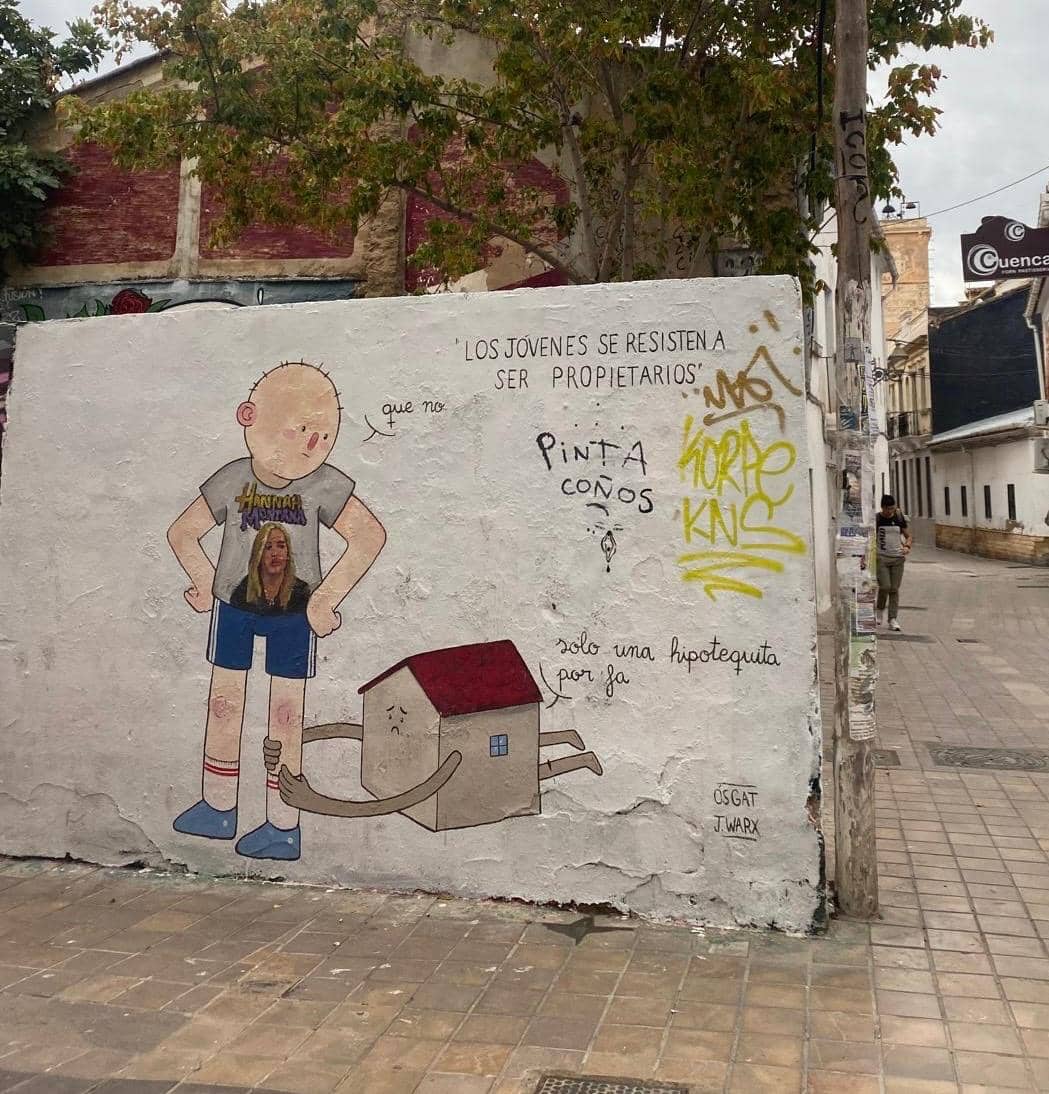 "LOS JÓVENES SE RESISTEN A
SER PROPIETARIOS"
que no
HANNAH
MONTANA
PINTA
COÑOS
KORAE
KNS
solo una hipotequita
por fa
OSGAT
J. WARX
Cuenca